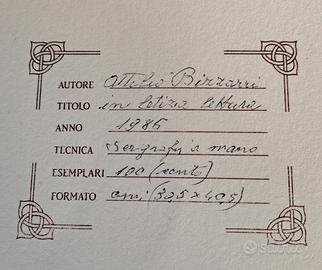 AUTORE Attilio Bizzarri
TITOLO in letizia lettura
ANNO 1986
TECNICA Serigrafia a mano
ESEMPLARI 100 (cento)
FORMATO cm. (30,5 x 40,5)
subito